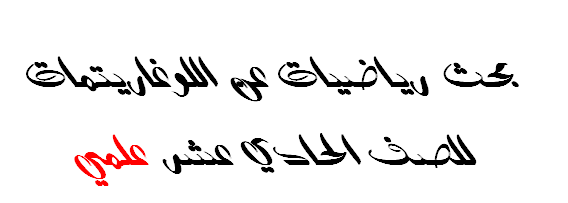 بحث رياضيات عن اللوغاريتمات
للصف الحادي عشر علمي